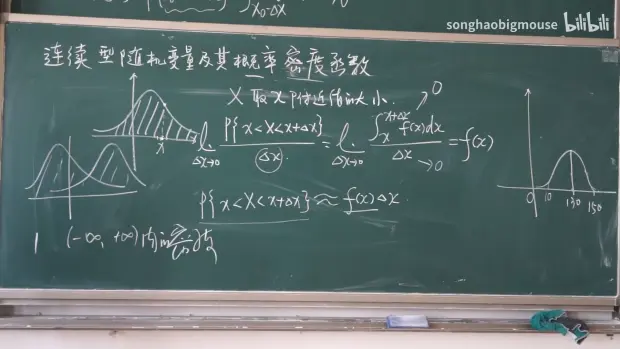 songhaobigmouse bilibili
x₀-Δx
连续型随机变量及其概率密度函数
X 取 x 附近值的大小.
0
lim Δx→0 P{x<X<x+Δx} / Δx = lim Δx→0 ∫ₓ^{x+Δx} f(x)dx / Δx →0 = f(x)
x
P{x<X<x+Δx} ≈ f(x)Δx.
0 10 130 150
1 (-∞, +∞)内的密度